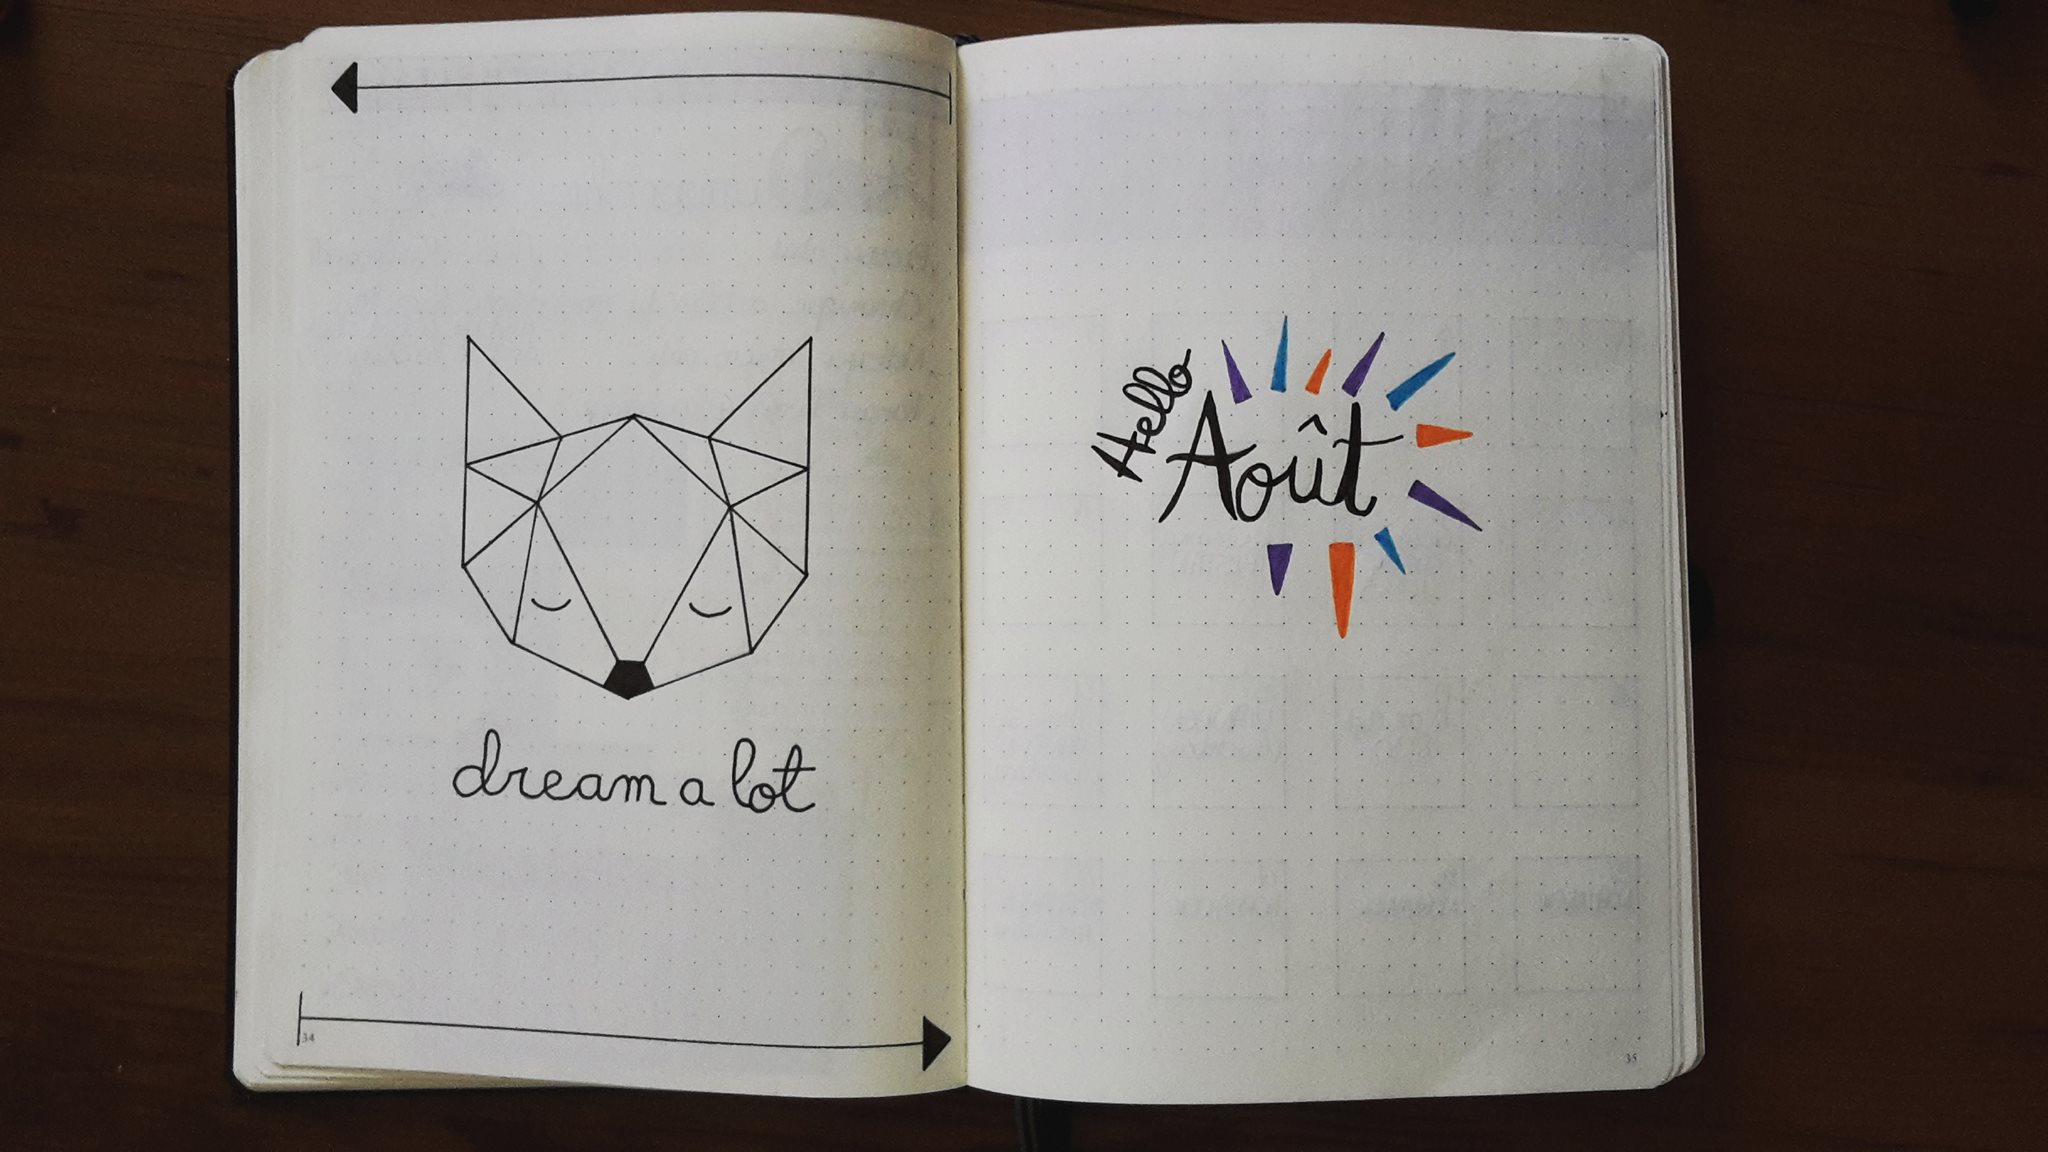 dream a lot
34
Hello
Août
35